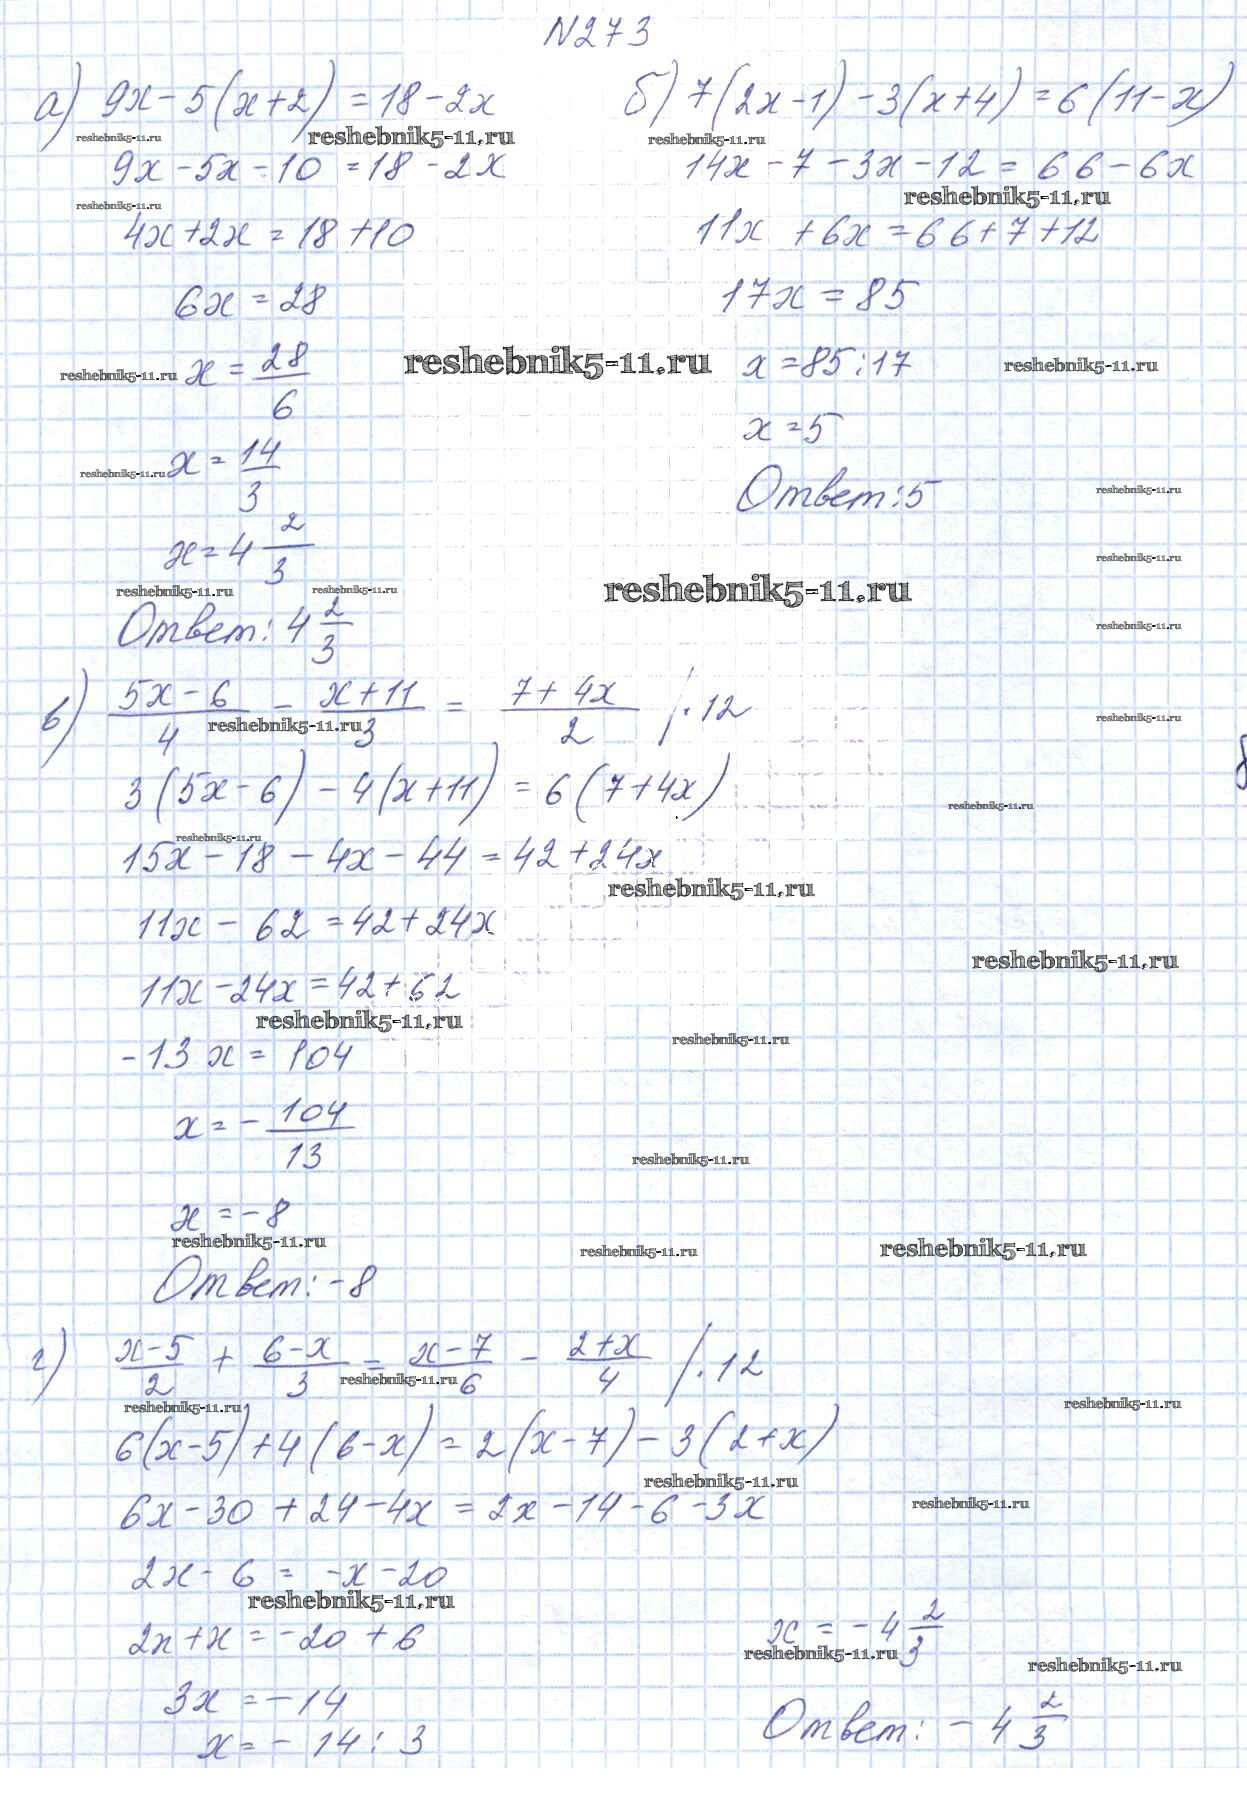 N273
а) 9x - 5(x+2) = 18 - 2x
reshebnik5-11.ru reshebnik5-11.ru
9x - 5x - 10 = 18 - 2x
reshebnik5-11.ru
4x + 2x = 18 + 10
6x = 28
reshebnik5-11.ru x = 28/6 reshebnik5-11.ru
reshebnik5-11.ru x = 14/3
x = 4 2/3
reshebnik5-11.ru reshebnik5-11.ru
Ответ: 4 2/3
б) 7(2x-1) - 3(x+4) = 6(11-x)
reshebnik5-11.ru
14x - 7 - 3x - 12 = 66 - 6x
reshebnik5-11.ru
11x + 6x = 66 + 7 + 12
17x = 85
x = 85 : 17 reshebnik5-11.ru
x = 5
Ответ: 5 reshebnik5-11.ru
reshebnik5-11.ru
reshebnik5-11.ru
reshebnik5-11.ru
в) (5x-6)/4 - (x+11)/3 = (7+4x)/2 /·12
reshebnik5-11.ru reshebnik5-11.ru
3(5x-6) - 4(x+11) = 6(7+4x)
reshebnik5-11.ru
reshebnik5-11.ru
15x - 18 - 4x - 44 = 42 + 24x
reshebnik5-11.ru
11x - 62 = 42 + 24x
reshebnik5-11.ru
11x - 24x = 42 + 62
reshebnik5-11.ru
reshebnik5-11.ru
-13x = 104
x = - 104/13
reshebnik5-11.ru
x = -8
reshebnik5-11.ru reshebnik5-11.ru reshebnik5-11.ru
Ответ: -8
г) (x-5)/2 + (6-x)/3 = (x-7)/6 - (2+x)/4 /·12
reshebnik5-11.ru
reshebnik5-11.ru reshebnik5-11.ru
6(x-5) + 4(6-x) = 2(x-7) - 3(2+x)
reshebnik5-11.ru
6x - 30 + 24 - 4x = 2x - 14 - 6 - 3x
reshebnik5-11.ru
2x - 6 = -x - 20
reshebnik5-11.ru
2x + x = -20 + 6
3x = -14
x = -14 : 3
x = -4 2/3
reshebnik5-11.ru reshebnik5-11.ru
Ответ: -4 2/3